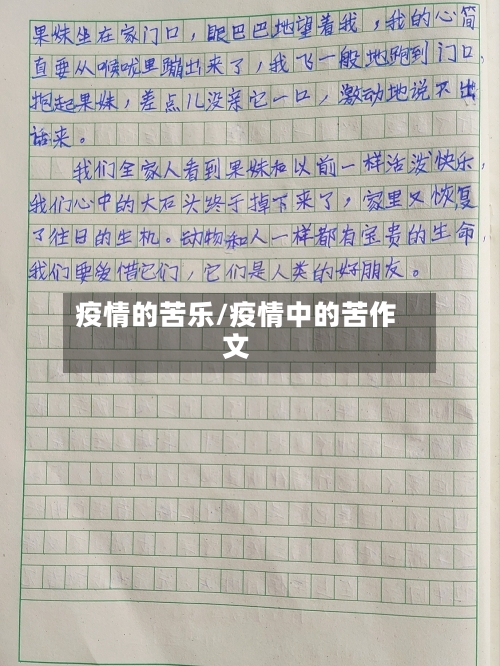 果妹坐在家门口，眼巴巴地望着我，我的心简
直要从喉咙里蹦出来了，我飞一般地跑到门口，
抱起果妹，差点儿没亲它一口，激动地说不出
话来。
我们全家人看到果妹和以前一样活泼快乐，
我们心中的大石头终于掉下来了，家里又恢复
了往日的生机。动物和人一样都有宝贵的生命，
我们要爱惜它们，它们是人类的好朋友。
疫情的苦乐/疫情中的苦作
文